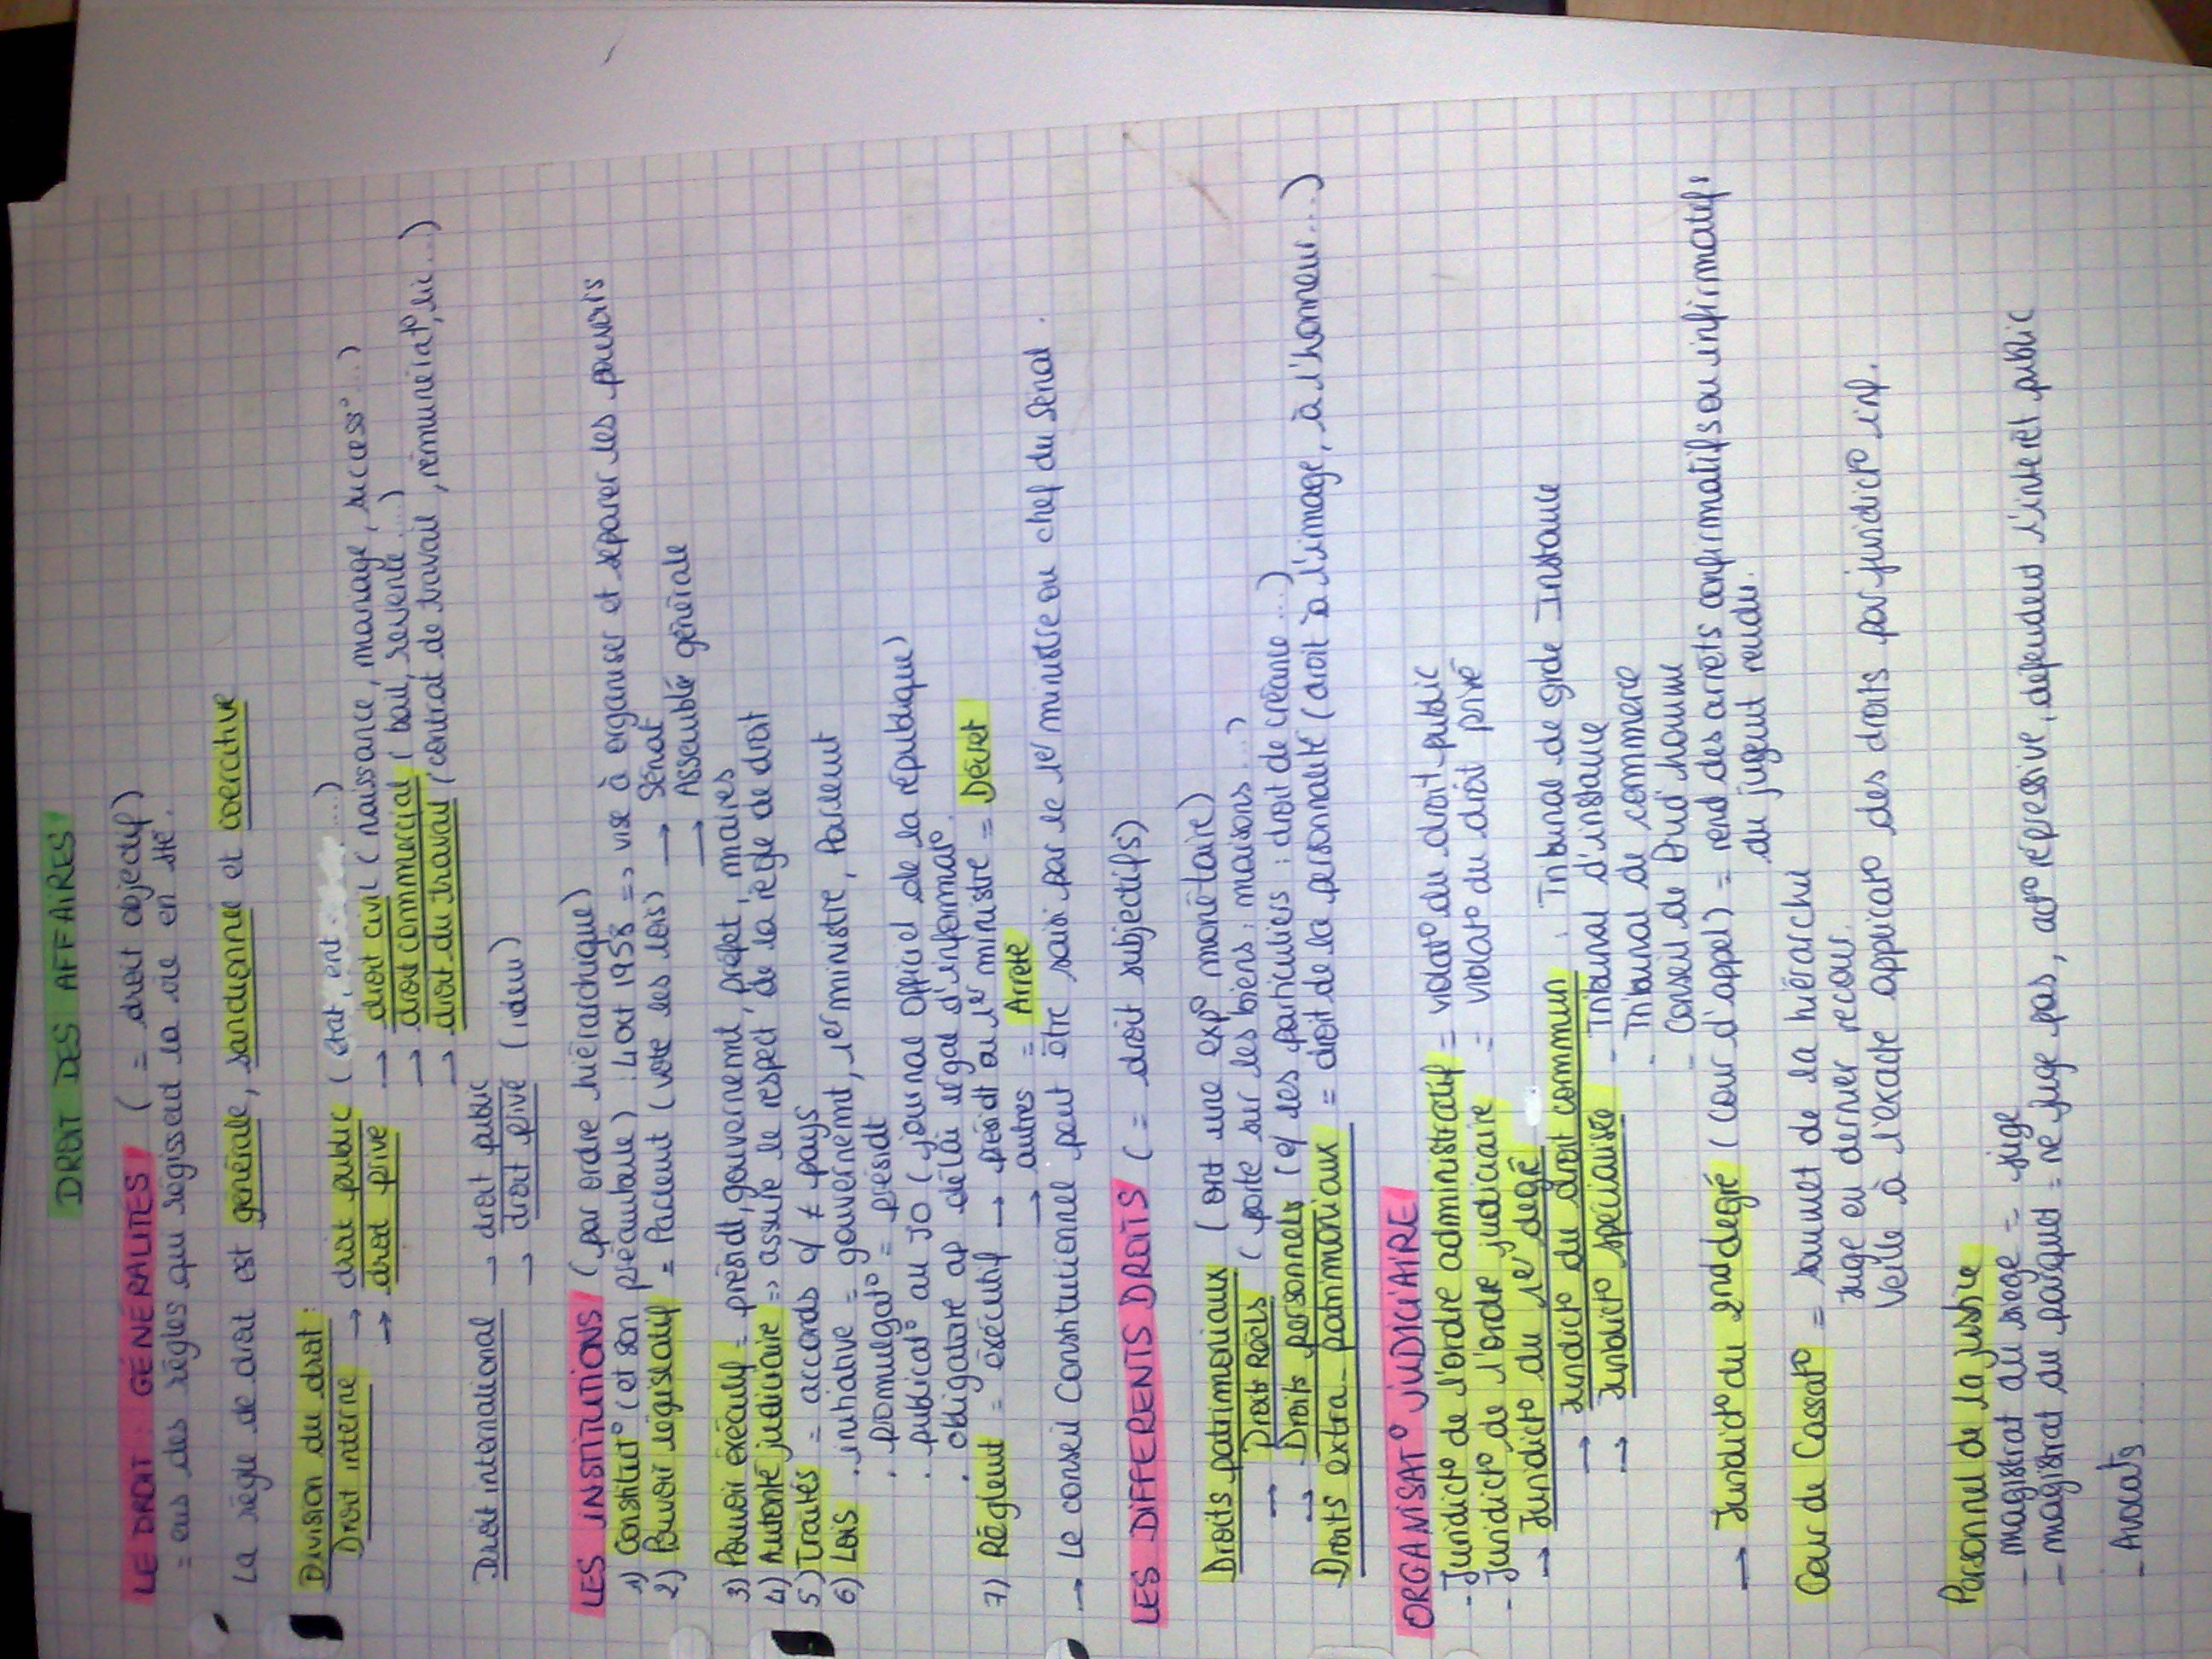 DROIT DES AFFAIRES
LE DROIT : GÉNÉRALITÉS ( = droit objectif)
= ens des règles qui régissent la vie en sté.
La règle de droit est générale, sanctionné et coercitive
Division du droit :
Droit interne → droit public (état, ent ....)
→ droit privé → droit civil (naissance, mariage, success° ...)
→ droit commercial (bail, revente ...)
→ droit du travail (contrat de travail, rémunérat°, lic ...)
Droit international → droit public
→ droit privé (idem)
LES INSTITUTIONS (par ordre hiérarchique)
1) Constitut° (et son préambule) : 4 oct 1958 => vise à organiser et séparer les pouvoirs
2) Pouvoir législatif = Parlemt (vote les lois) → Sénat
→ Assemblé générale
3) Pouvoir éxécutif = présidt, gouvernemt, préfet, maires
4) Autorité judiciaire => assure le respect de la règle de droit
5) Traités = accords e/ ≠ pays
6) Lois : initiative = gouvernemt, 1er ministre, Parlemt
. promulgat° = présidt
. publicat° au JO (journal Officiel de la république)
. obligatoire ap délai légal d'informat°.
7) Règlemt = éxécutif → présidt ou 1er ministre = Décret
→ autres = Arrêté
→ Le conseil Constitutionnel peut être saisi par le 1er ministre ou chef du Sénat.
LES DIFFERENTS DROITS ( = droit subjectifs)
Droits patrimoniaux (ont une exp° monétaire)
→ Droits Réels (porte sur les biens : maisons ...)
→ Droits personnels (e/ les particuliers : droit de créance ...)
Droits extra-patrimoniaux = droit de la personnalité (droit à l'image, à l'honneur ...)
ORGANISAT° JUDICIAIRE
- Juridict° de l'ordre administratif = violat° du droit public
- Juridict° de l'ordre judiciaire = violat° du droit privé
→ Juridict° du 1er degré
→ Juridict° du droit commun : Tribunal de grde Instance
→ Juridict° spécialisée - Tribunal d'instance
- Tribunal de commerce
- Conseil de Prud'homme
→ Juridict° du 2nd degré (cour d'appel) = rend des arrêts confirmatifs ou infirmatifs
du jugemt rendu.
Cour de Cassat° = sommet de la hiérarchie
Juge en dernier recour.
Veille à l'exacte applicat° des droits par juridict° inf.
Personnel de la justice
- magistrat du siège = juge
- magistrat du parquet = ne juge pas, act° répressive, défendent l'intérêt public
- Avocats ......